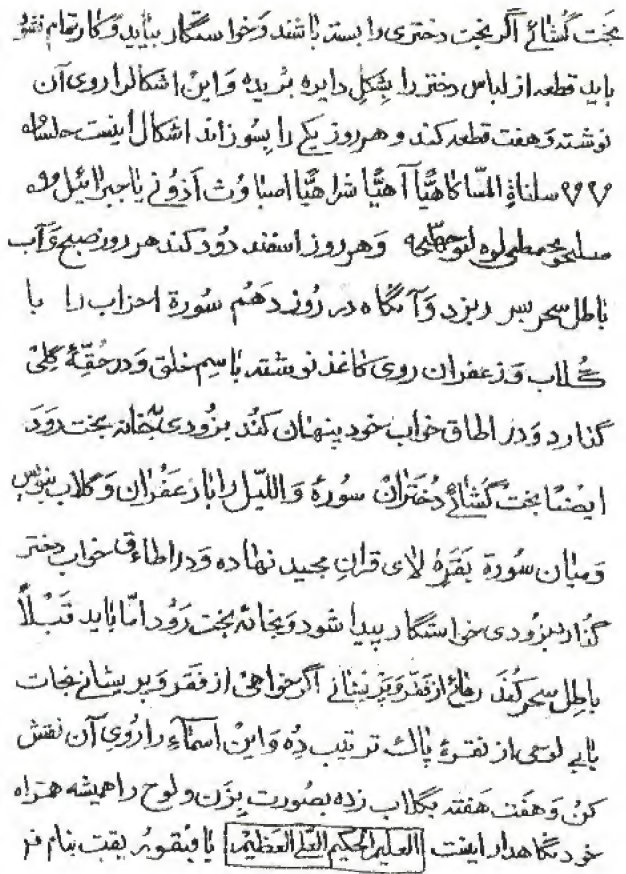 بخت گشائے اگر بخت دختری را بسته باشند وَخواستگار نیاید وَکار تمام نشو
باید قطعه از لباس دختر را بِشَکلِ دایره بُریده وَ این اشکالرا روی آن
نوشته وَ هفت قطعه کند و هر روز یکے را بِسُوزاند اشکال اینست
سلناةٍ المنّا کا هَیًّا آ هَیًّا شرا هَیًّا اصبا وُث آذُونے یا جبرائیل
وَهر روز اسفند دُود کند هر روز صبح وَ آب
باطل سحر بسر ریزد وَ آنگاه در رُوز دَهُم سُورة احزاب را با
گُلاب وَ زعفران روی کاغذ نوشته باسم خلق وَ در حُقّهٔ گِلیْ
گذارد وَ در اطاق خواب خود پنهان کُند بزُودی بخانه بخت رَوَد
ایضًا بخت گُشائے دُختَران سُورهٔ وَاللَّیل را با زعَفُران وَ گلاب بنویس
وَ میان سُورة بَقَرهٔ لای قرانِ مجید نهاده وَ در اطاءق خواب دختر
گذار بزودی خواستگار پیدا شود وَ بخانهٔ بخت رَوَد امّا باید قَبْلاً
باطِل سحر کُند رفاع از فَقر وَ پَریشانے اگر خواهی از فَقر وَ پریشانے نجات
یابے لوحی از نقرهٔ پاک ترتیب دِه وَ این اسمآءِ را رُویِ آن نقش
کن وَ هفت هَفته بگلاب زده بصُورت بِزَن و لوح را همیشه همَراه
خود نگاهدار اینست العلیم الحکیم العَلی العَظیم یا فیقُو بنام فر